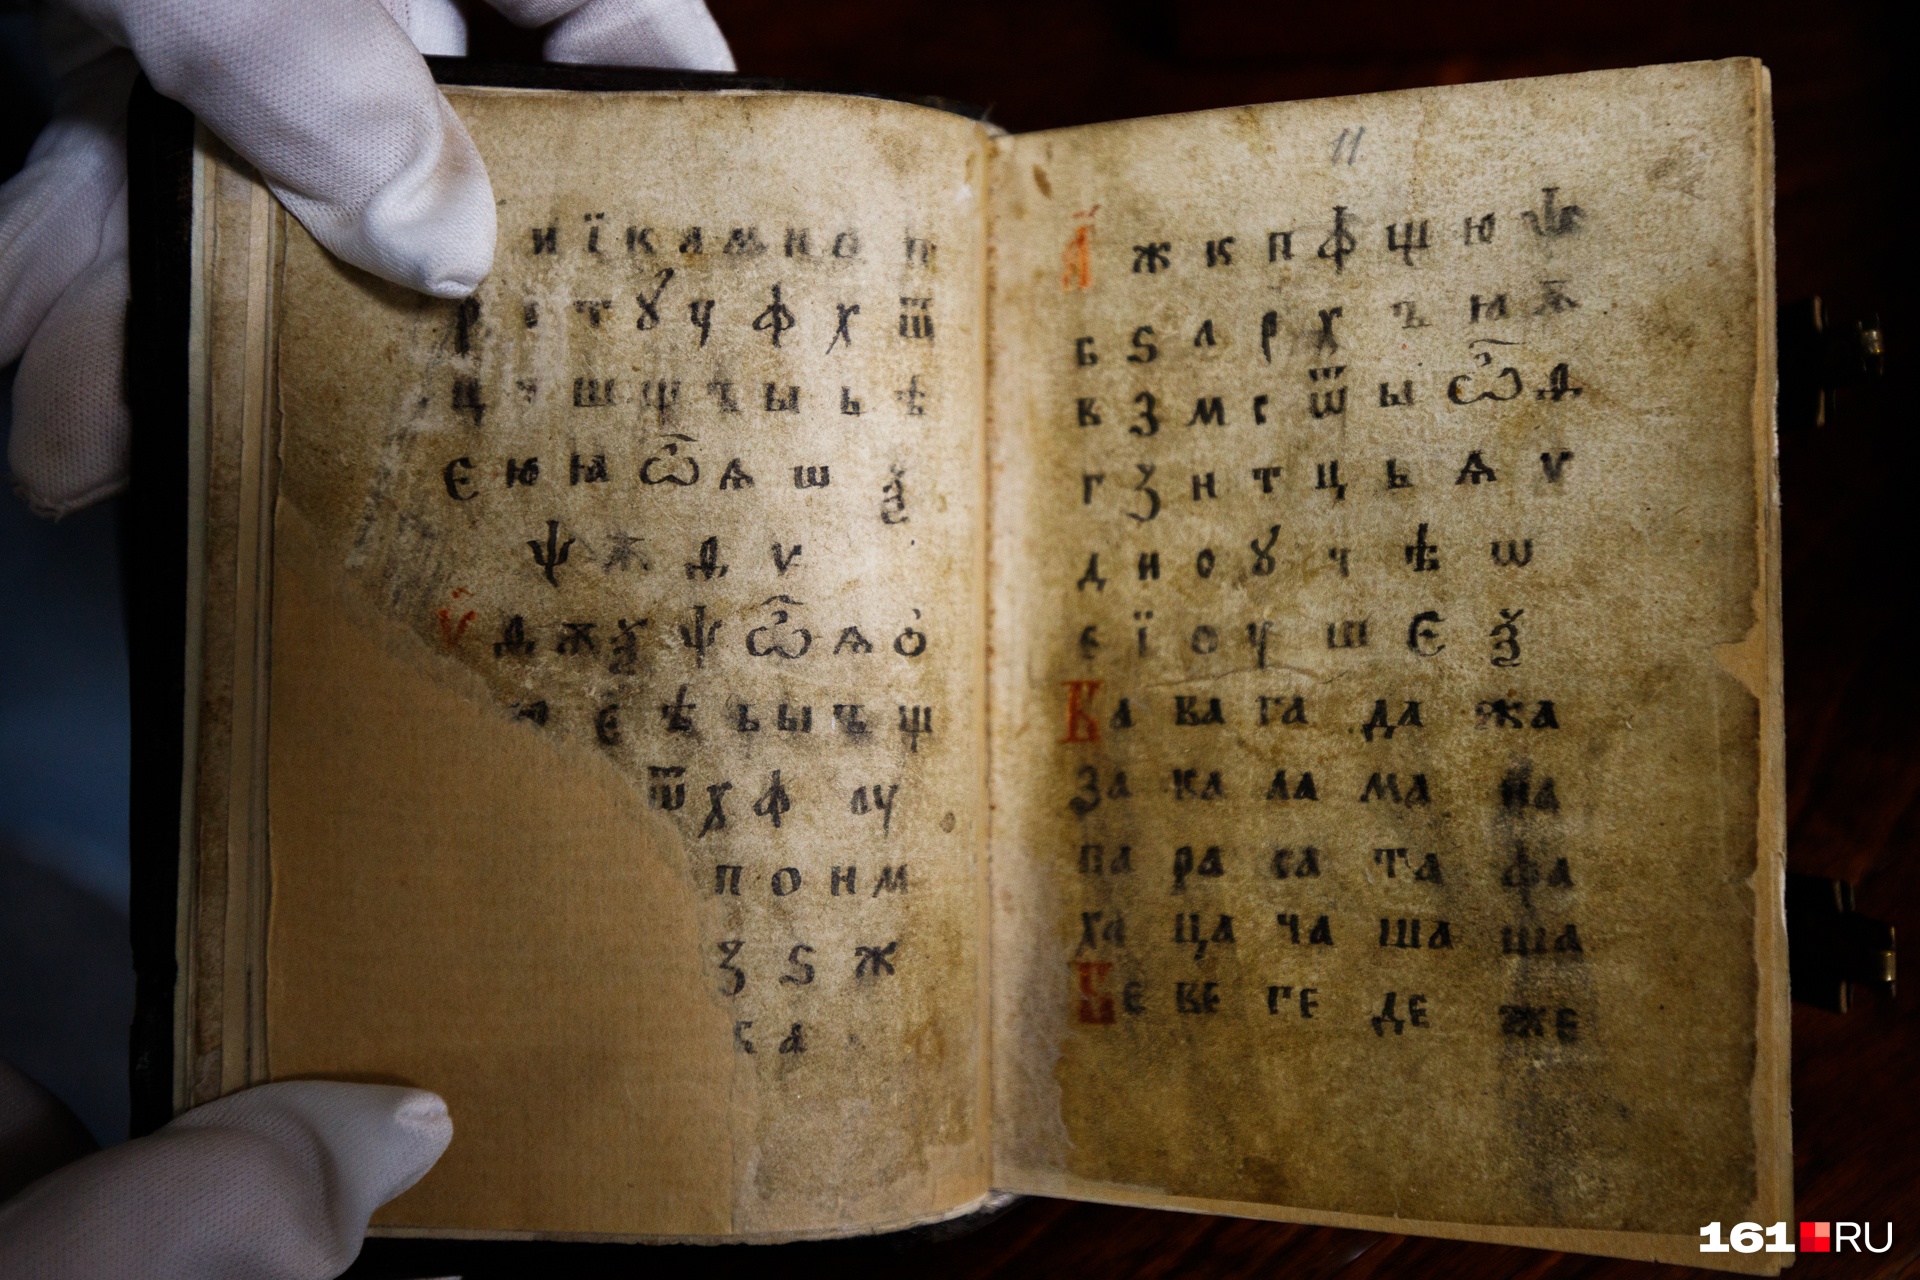 и ї к л м н о п
р с т ꙋ ч ф х ѿ
ц ч ш щ ъ ы ь ѣ
є ю ꙗ ѽ ѧ ш ѯ
ѱ ѫ д ѵ
ѵ д ѫ ѯ ѱ ѽ ѧ о
є ѣ ь ы ъ щ
ѿ х ф ꙋ
п о н м
ꙁ ѕ ж
а
11
а ж к п ф щ ю ѱ
б ѕ л р х ъ ꙗ ѫ
в з м с ѿ ы ѽ д
г ꙁ н т ц ь ѧ ѵ
д и о ꙋ ч ѣ ѡ
е ї о ч ш є ѯ
Ба ва га да жа
за ка ла ма на
па ра са та фа
ха ца ча ша ща
Бе ве ге де же
161 RU